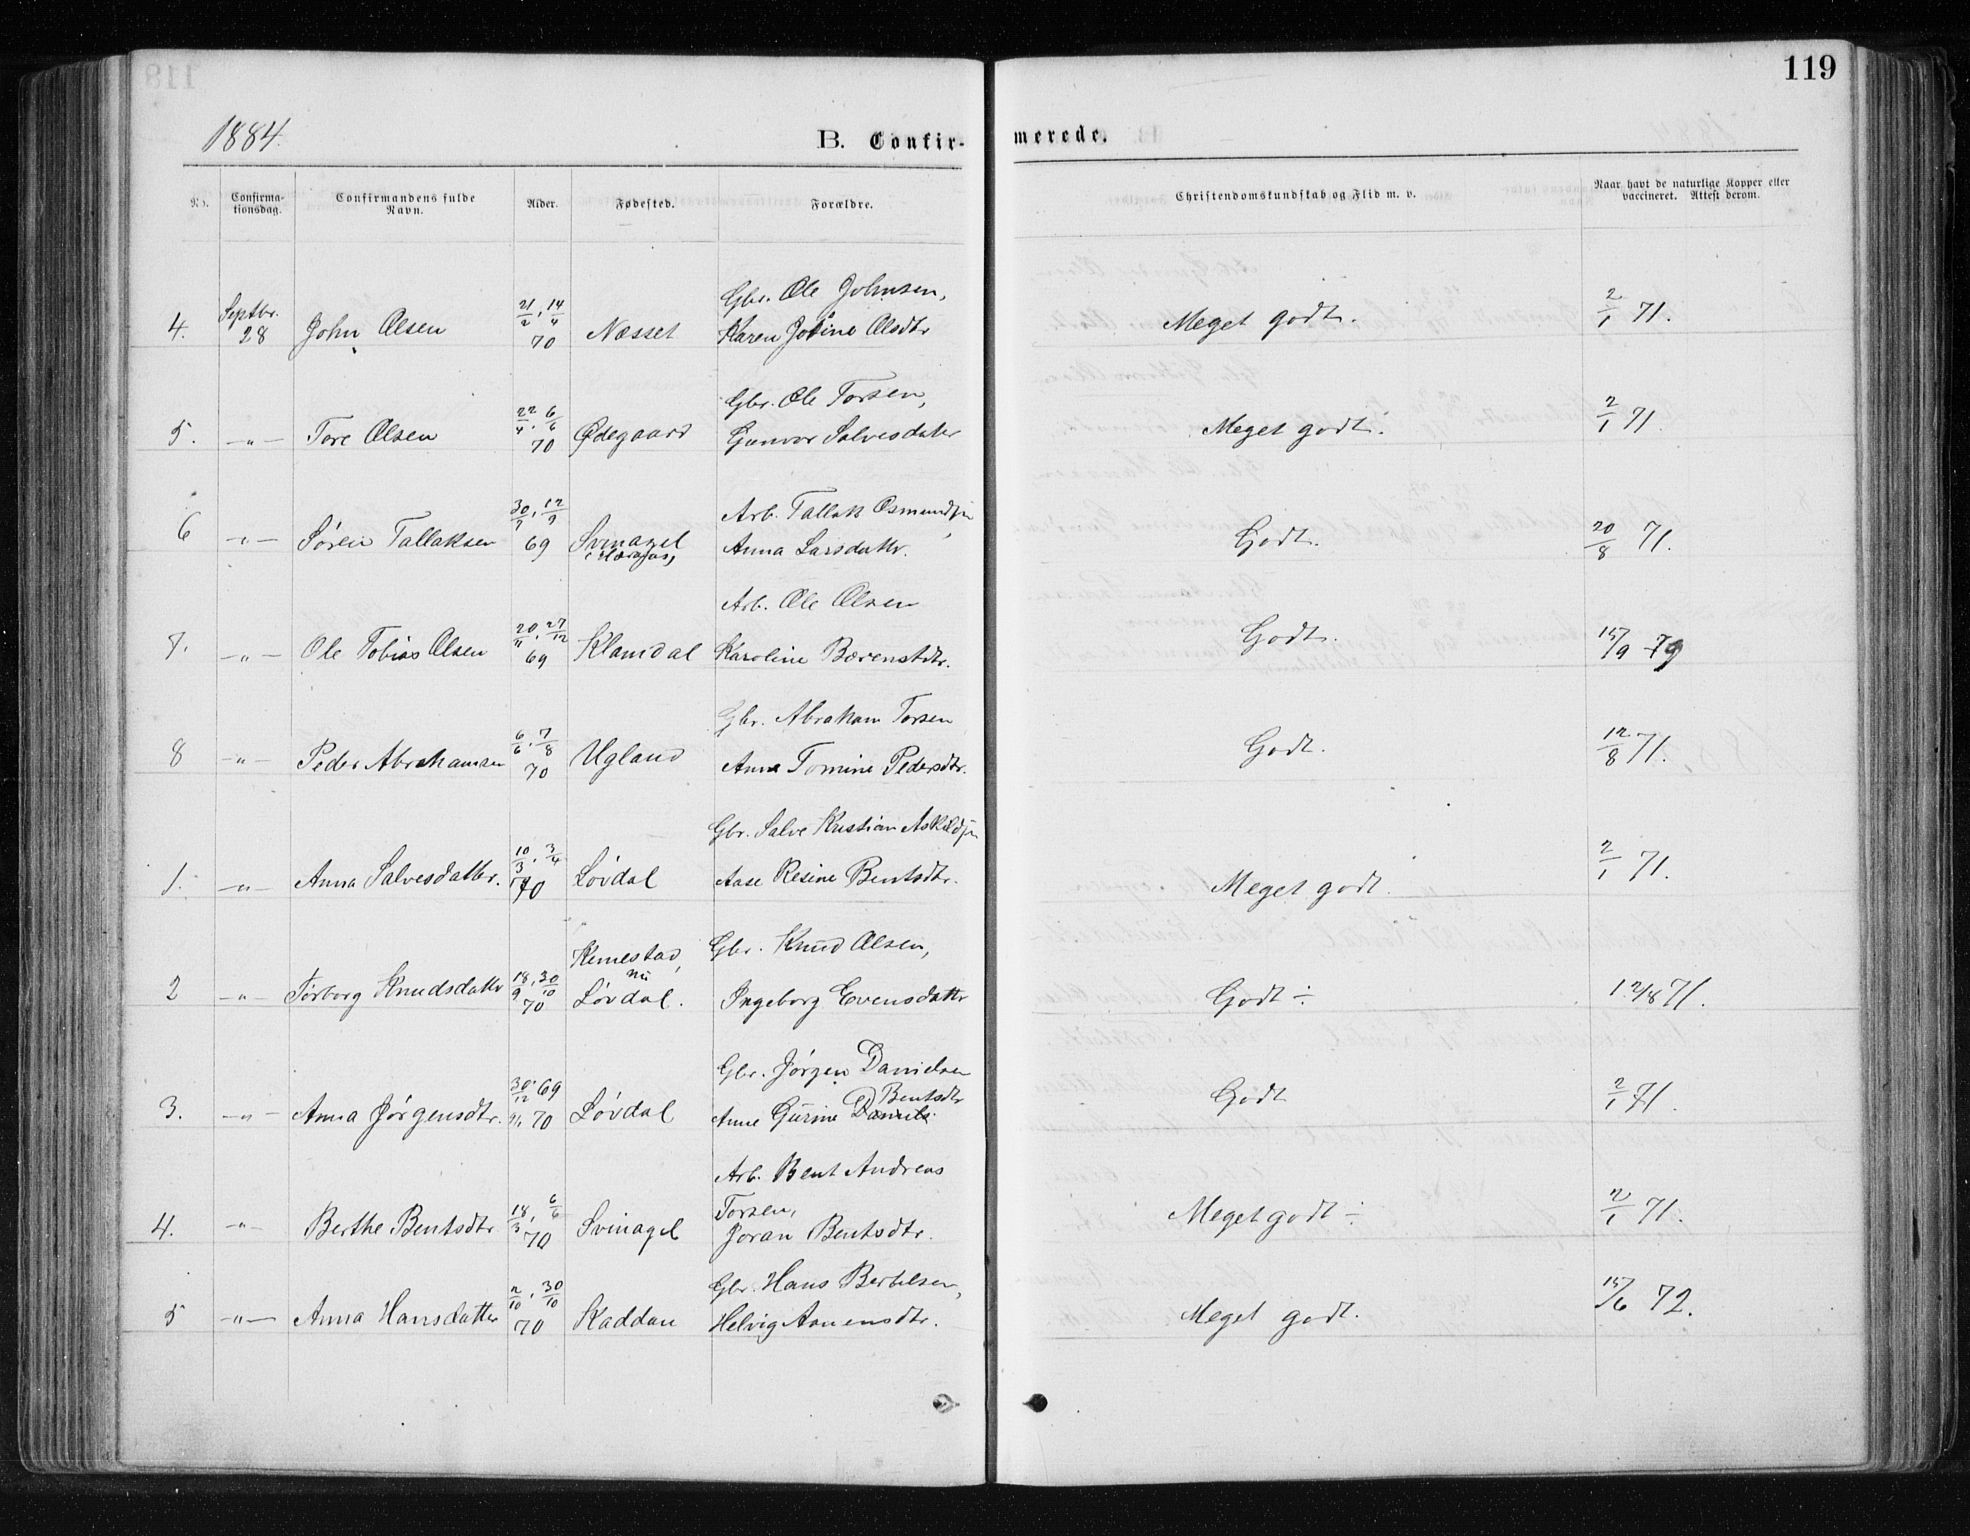 119
1884.
B. Confir- merede.
No. Confirma-tionsdag. Confirmandens fulde Navn. Alder. Fødested. Forældre. Christendomskundskab og Flid m. v. Naar havt de naturlige Kopper eller vaccineret. Attest derom.
Septbr. 21/2, 14/4 Gbr. Ole Johnsen, 2/1 71.
4. 28 John Olsen 70 Næsset Karen Olsdtr Meget godt.
22/4, 6/6 Gbr. Ole Torsen, 2/1 71.
5. -"- Tore Olsen 70 Ødegaard Gunvor Salvesdatter Meget godt.
12/9 Arb. Tallak Osmundsen,
6 -"- Søren Tallaksen 69 Svinagel Anna Larsdatter. Godt. 20/8 71.
Arb. Ole Olsen
20/11, 27/12 Godt. 15/9 79
7. -"- Ole Tobias Olsen 69 Klamdal Karoline Bærentsdtr.
Gbr. Abraham Torsen
6/6, 7/8 Godt. 12/8 71.
8 -"- Peder Abrahamsen 70 Ugland Anna Tomine Pedersdtr.
Gbr. Salve Kristian Askildsen
10/3, 3/4 2/1 71.
1. -"- Anna Salvesdatter. 70 Løvdal Aase Resine Bentsdtr. Meget godt.
Gbr. Knud Olsen,
18/9, 30/10 nu
2 -"- Torborg Knudsdatter 70 Løvdal. Ingeborg Evensdatter Godt ÷ 12/8 71.
Gbr. Jørgen Danielsen
30/12 69 Bentsdtr Godt 2/1 71.
3. -"- Anna Jørgensdtr. 70 Løvdal Anne Gurine Daniels
Arb. Bent Andreas
18/3, 6/6 Torsen, Meget godt ÷ 2/1 71.
4. -"- Berthe Bentsdtr 70 Svinagel Joran Bentsdtr.
2/10, 30/10 Gbr. Hans Bertelsen, 15/6 72.
5 -"- Anna Hansdatter 70 Kaddan Helvig Aanensdtr. Meget godt.